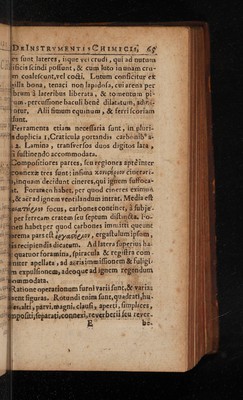 DE INSTRVMENTIS CHIMICIS. 65
nt sunt lateres, iique vel crudi, qui ad nutum
ificis scindi possunt, & cum luto in unam cru-
m coalescunt, vel cocti. Lutum conficitur ex
illa bona, tenaci non lapidosa, cui arena per
brum à lateribus liberata, & tomentum pi-
um, percussione baculi benè dilatatum, admi-
ntur. Alii fimum equinum, & ferri scoriam
dunt.
Ferramenta etiam necessaria sunt, in pluri-
duplicia 1. Craticula portandis carbonib9
2. Lamina, transversos duos digitos lata,
i sustinendo accommodata.
Compositiores partes, seu regiones aptè inter
connexæ tres sunt: infima cinerari-
inquam decidunt cineres, qui ignem suffoca-
t. Foramen habet, per quod cineres eximun
& aër ad ignem ventilandum intrat. Media est
focus, carbones continet, à subje-
per ferream cratem seu septum distincta. Fo-
nen habet per quod carbones immitti queunt
rema pars est ergastulum ipsum,
is recipiendis dicatum. Ad latera superius ha-
quatuor foramina, spiracula & registra com-
niter apellata, ad aëris immissionem & fuligi-
m expulsionem, adeoque ad ignem regendum
ommodata.
Ratione operationum furni varii sunt, & varias
ent figuras. Rotundi enim sunt, quadrati, hu-
es, alti, parvi, magni, clausi, aperti, simplices,
mpositi, separati, connexi, reverberii seu rever-
E be-